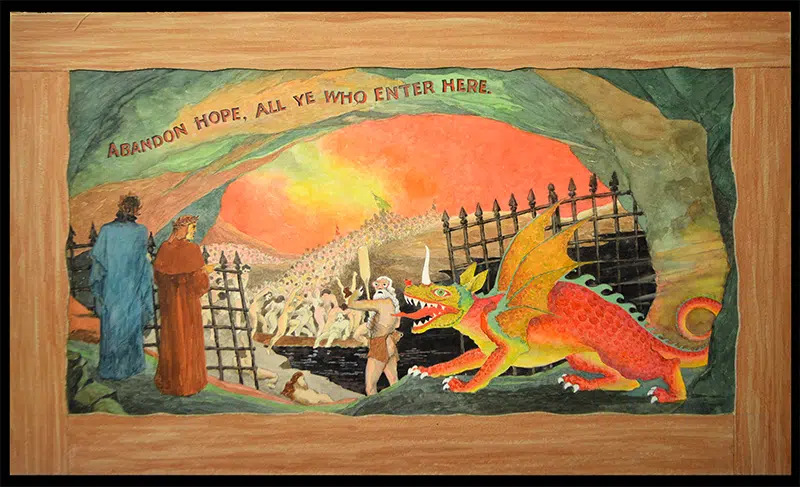 ABANDON HOPE, ALL YE WHO ENTER HERE.